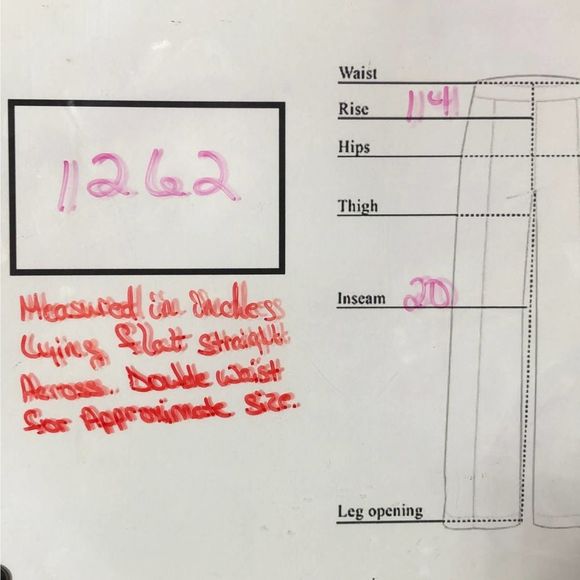 Waist
Rise 14
Hips
1262
Thigh
Inseam 20
Measured in inches
lying flat straight
Across. Double waist
for Approximate Size.
Leg opening